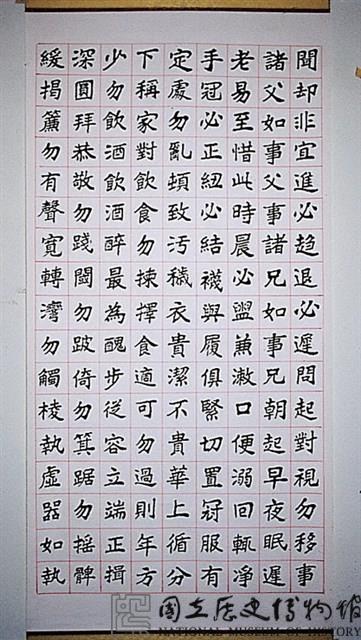 聞却非宜進必趨退必遲問起對視勿移事
諸父如事父事諸兄如事兄朝起早夜眠遲
老易至惜此時晨必盥兼漱口便溺回輒淨
手冠必正紐必結襪與履俱緊切置冠服有
定處勿亂頓致污穢衣貴潔不貴華上循分
下稱家對飲食勿揀擇食適可勿過則年方
少勿飲酒飲酒醉最為醜步從容立端正揖
深圓拜恭敬勿踐閾勿跛倚勿箕踞勿搖髀
緩揭簾勿有聲寬轉灣勿觸棱執虛器如執
國立歷史博物館
NATIONAL MUSEUM OF HISTORY